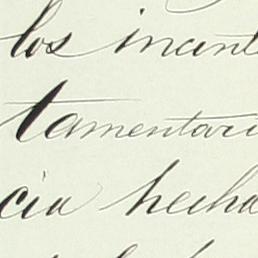 los incant
tamentari
cia hecha